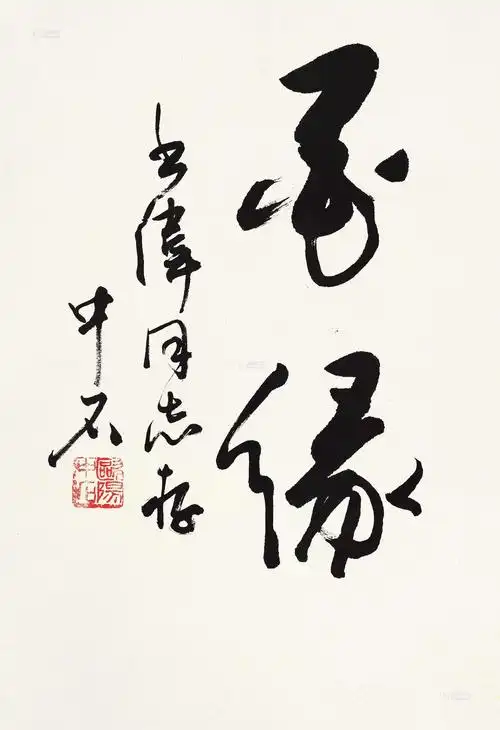 緣
书偉同志存
中石
歐陽中石